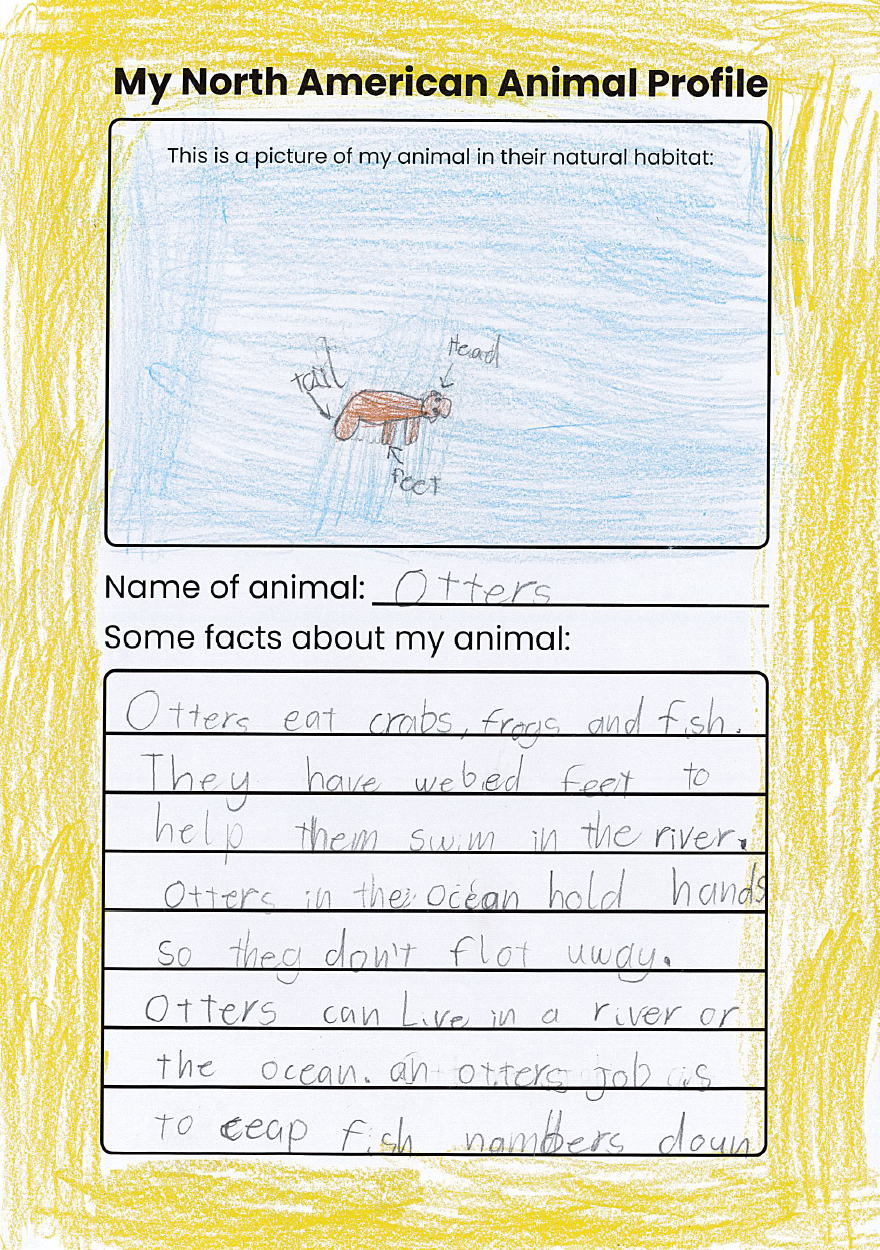 My North American Animal Profile
This is a picture of my animal in their natural habitat:
Head
tail
feet
Name of animal: Otters
Some facts about my animal:
Otters eat crabs, frogs and fish.
They have webed feet to
help them swim in the river.
Otters in the ocean hold hands
so they don't flot uway.
Otters can Live in a river or
the ocean. an otters job is
to ceap fish nambers doun